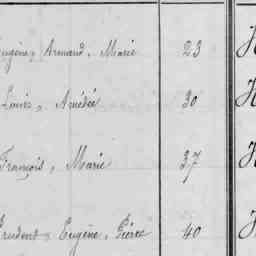 Eugène, Armand, Marie 23
Louis, Amédée 30
François, Marie 37
Prudent, Eugène, Pierre 40